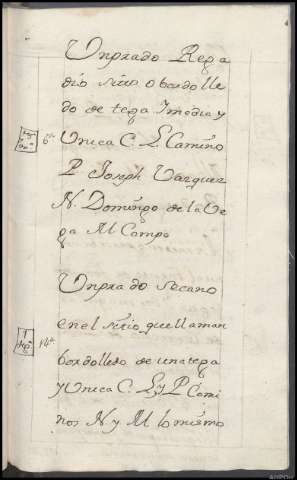 Un prado Rega
dio sitio o bordolle
do de tega Imedia y
6ª Unica C. L. Camino
P Joseph Vazquez
N. Domingo de la Ve
ga M Campo
Un prado secano
14ª en el sitio que llaman
bordolledo de una tega
y Unica C. L y P Cami
nos N y M lo mismo